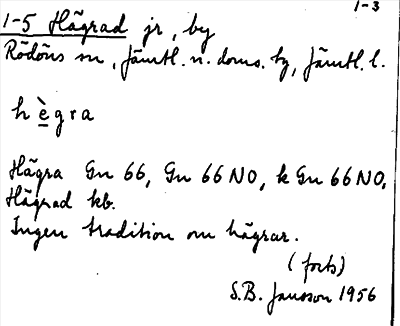 1-3
1-5 Hägrad jr, by
Rödöns sn, Jämtl. n. doms. tg, Jämtl. l.
hègra
Hägra Gn 66, Gn 66 NO, k Gn 66 NO,
Hägrad kb.
Ingen tradition om hägrar.
(forts)
S.B. Jansson 1956